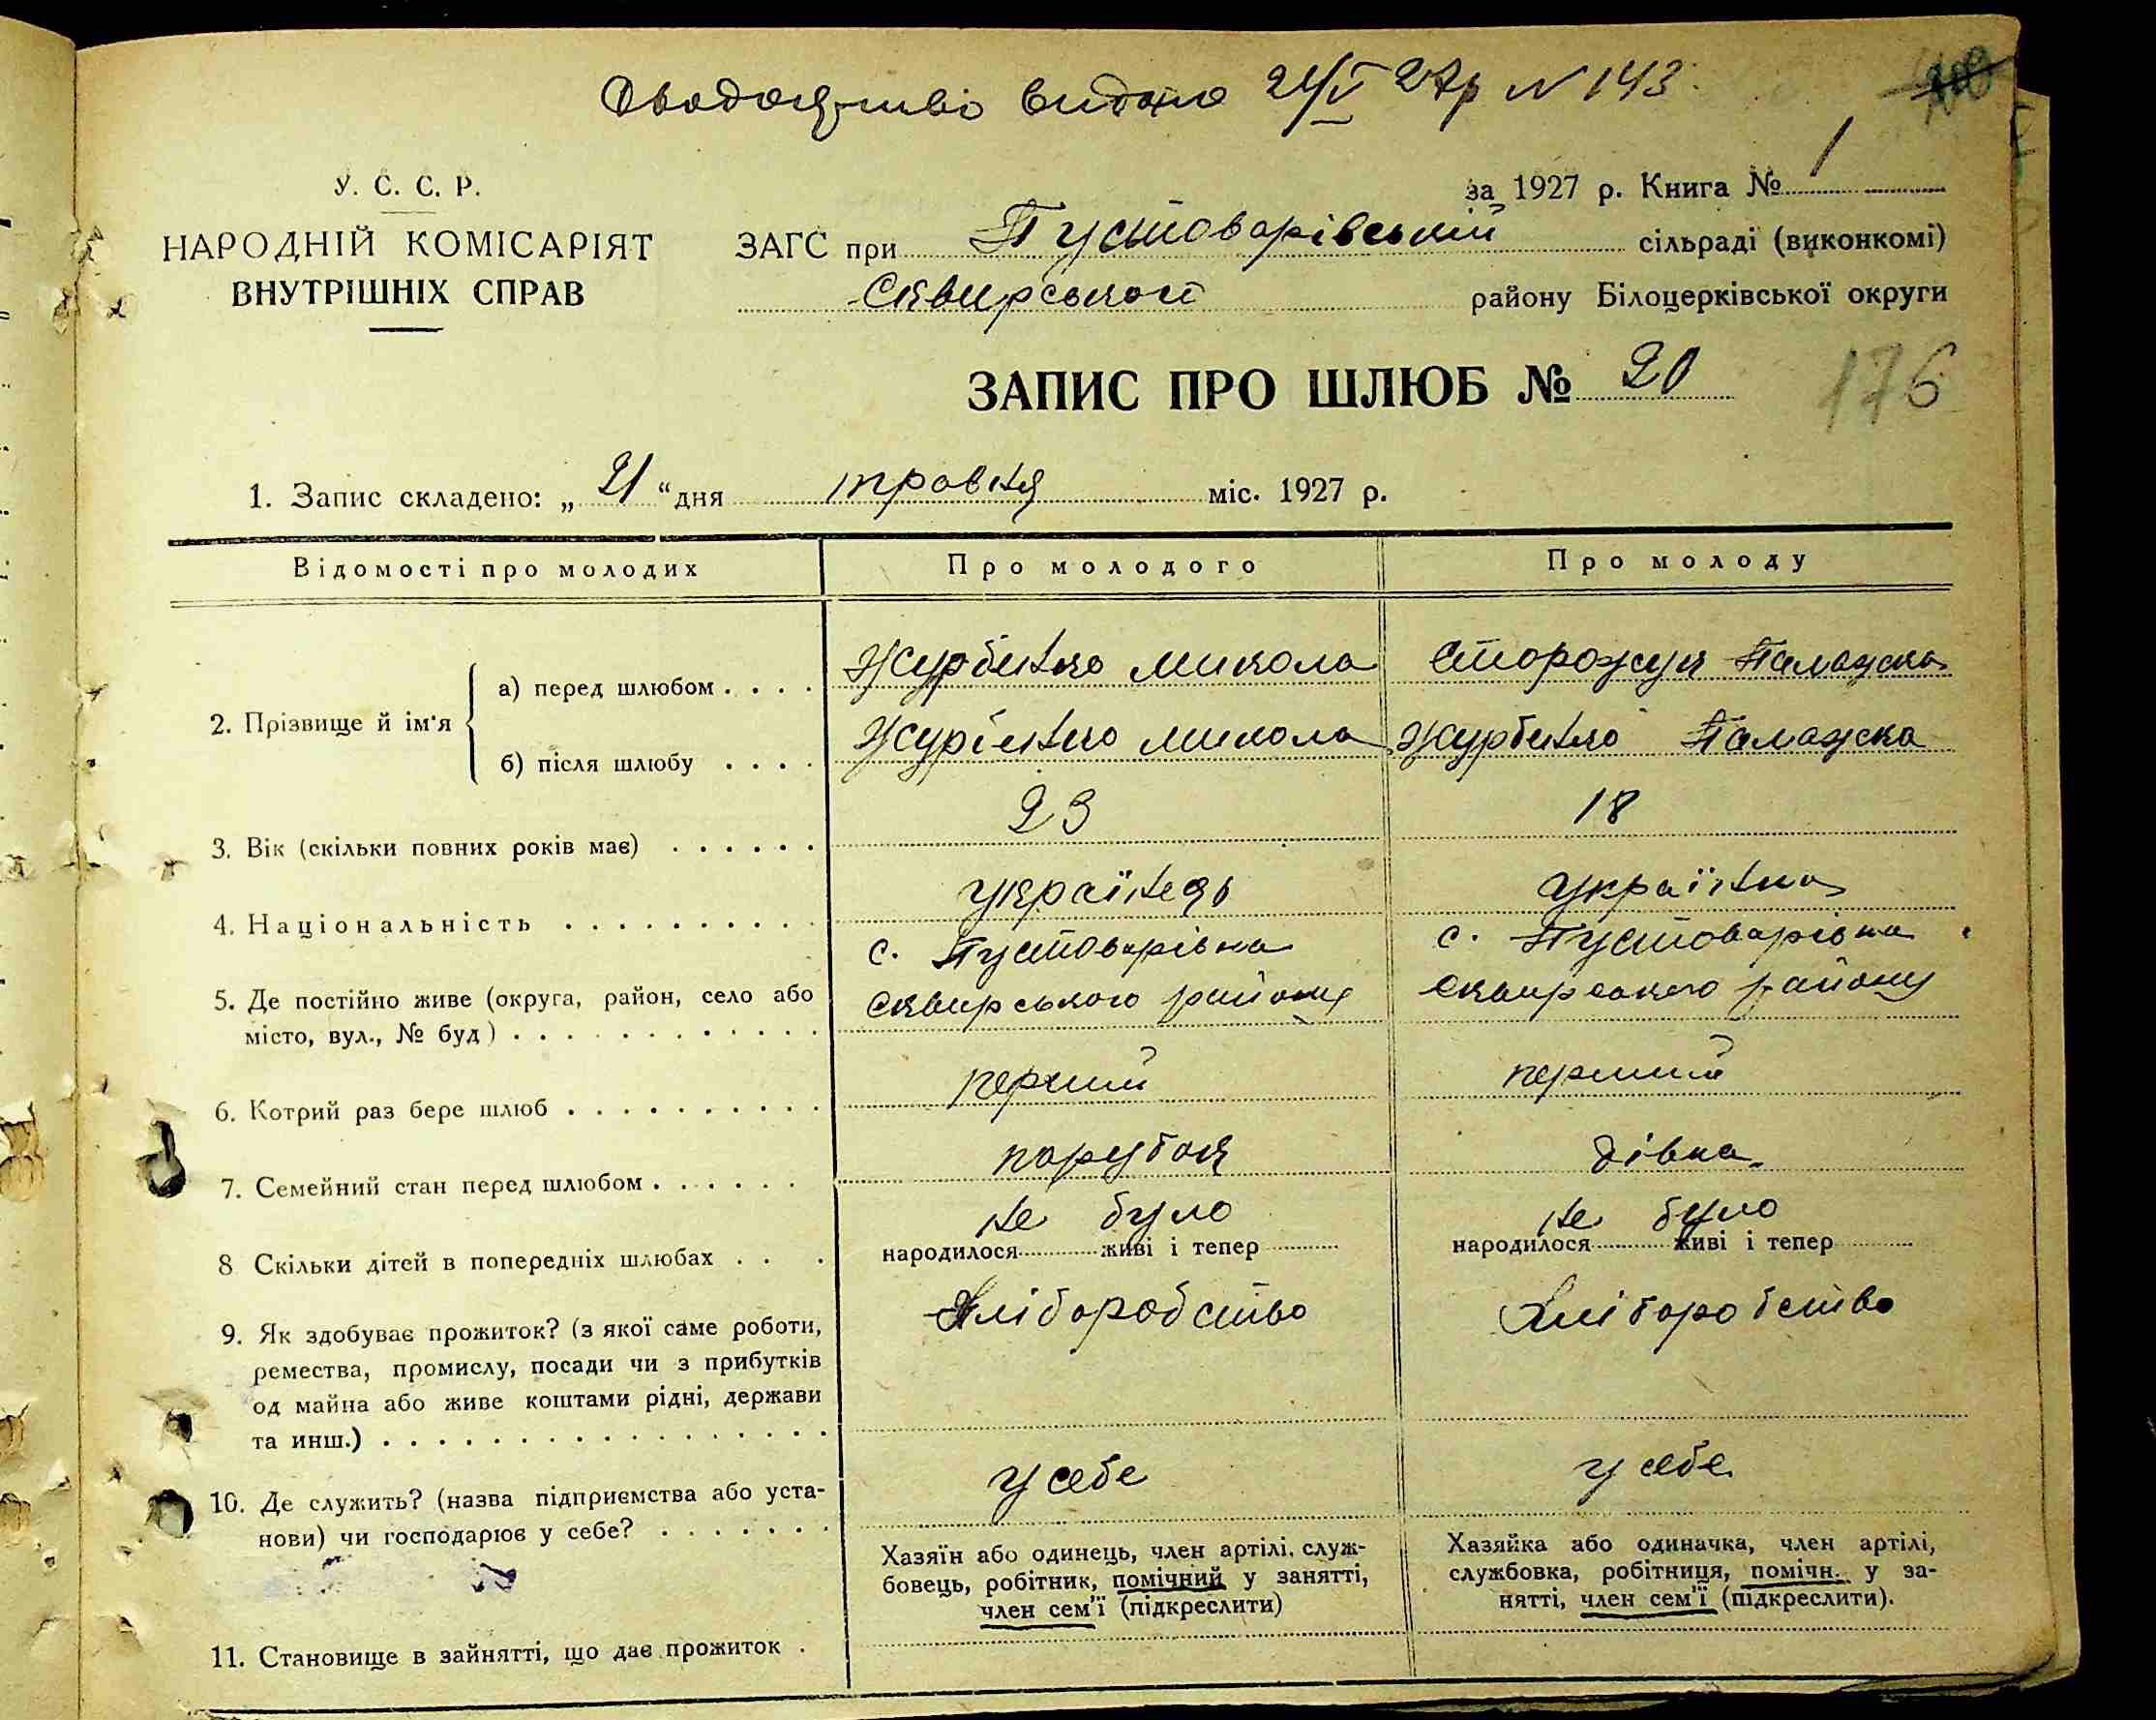 Свідоцтво видано 21/V 27р N 143.
У. С. С. Р.
НАРОДНІЙ КОМІСАРІЯТ
ВНУТРІШНІХ СПРАВ
за 1927 р. Книга № 1
ЗАГС при Пустоварівській сільраді (виконкомі)
Сквирського району Білоцерківської округи
ЗАПИС ПРО ШЛЮБ № 20
176
1. Запис складено: „ 21 “ дня травня міс. 1927 р.
Відомості про молодих Про молодого Про молоду
2. Прізвище й ім'я
а) перед шлюбом . . . . Журбенко Микола Сторожук Палажка
б) після шлюбу . . . . Журбенко Микола Журбенко Палажка
3. Вік (скільки повних років має) . . . . . . 23 18
4. Національність . . . . . . . . . . українець українка
5. Де постійно живе (округа, район, село або
місто, вул., № буд) . . . . . . . . . . . .
с. Пустоварівка
Сквирського району
с. Пустоварівка
Сквирського району
6. Котрий раз бере шлюб . . . . . . . . . . перший перший
7. Семейний стан перед шлюбом . . . . . . парубок дівка
8 Скільки дітей в попередніх шлюбах . . .
не було
народилося живі і тепер
не було
народилося живі і тепер
9. Як здобуває прожиток? (з якої саме роботи,
ремества, промислу, посади чи з прибутків
од майна або живе коштами рідні, держави
та инш.) . . . . . . . . . . . . . . . . .
Хліборобство
Хліборобство
10. Де служить? (назва підприємства або уста-
нови) чи господарює у себе? . . . . . . .
у себе
у себе
11. Становище в зайнятті, що дає прожиток .
Хазяїн або одинець, член артілі, служ-
бовець, робітник, помічний у занятті,
член сем'ї (підкреслити)
Хазяйка або одиначка, член артілі,
службовка, робітниця, помічн. у за-
нятті, член сем'ї (підкреслити).